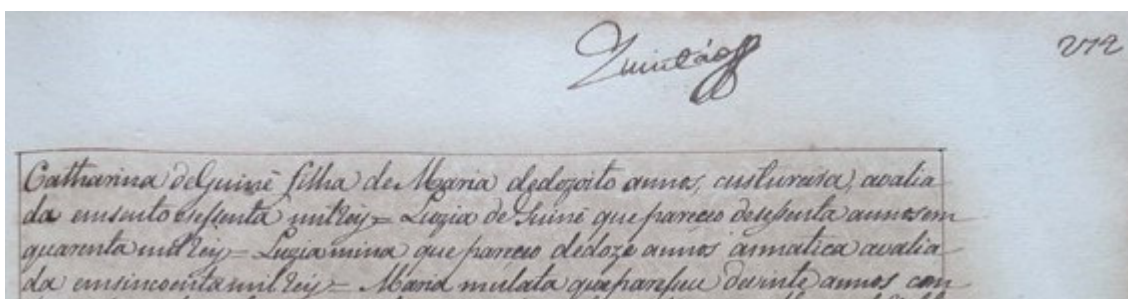 Quintão
272
Catharina de Guinê filha de Maria de dozoito annos, custureira, avalia
da em sento e sessenta mil reis = Luzia de Guinê que pareceo de sessenta annos em
quarenta mil reis = Luzia mina que pareceo de doze annos asmatica avalia
da em sincoenta mil reis = Maria mulata que paresseu de vinte annos com